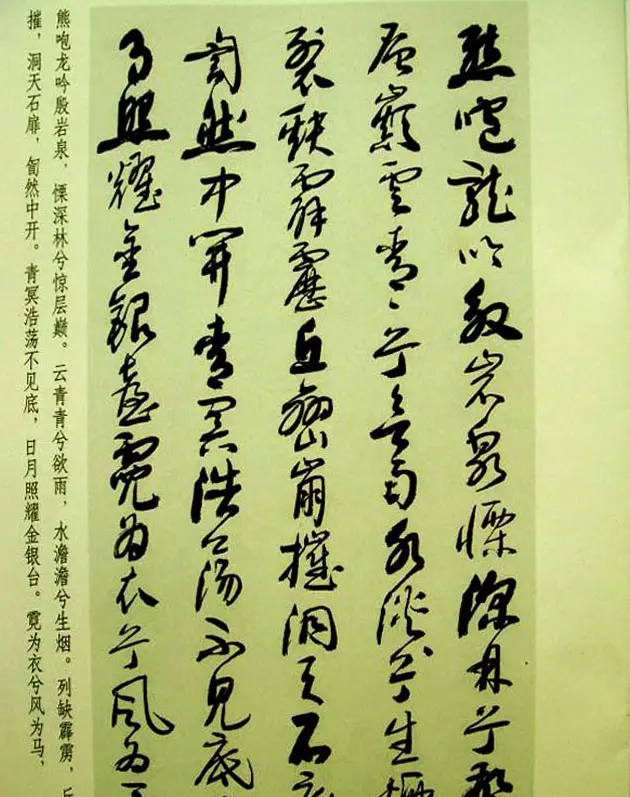 熊咆龍吟殷岩泉慄深林兮驚
层巔雲青青兮欲雨水淡淡兮生煙
裂缺霹靂丘巒崩摧洞天石扉
訇然中開青冥浩蕩不見底
月照耀金銀臺霓为衣兮風为
熊咆龙吟殷岩泉，慄深林兮惊层巅。云青青兮欲雨，水澹澹兮生烟。列缺霹雳，丘
摧，洞天石扉，訇然中开。青冥浩荡不见底，日月照耀金银台。霓为衣兮风为马，